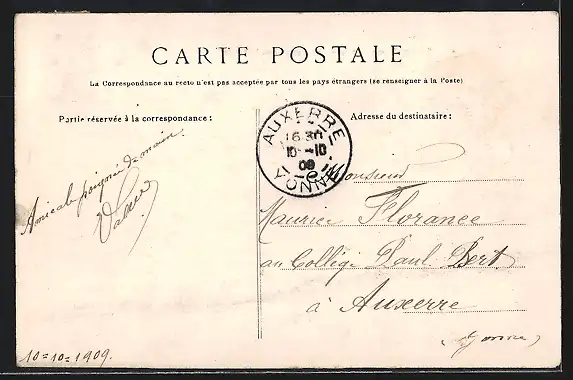 CARTE POSTALE
La Correspondance au recto n'est pas acceptée par tous les pays étrangers (se renseigner à la Poste)
Partie réservée à la correspondance :
Amicale poignée de main.
10=10=1909.
AUXERRE
1630
10-10
09
YONNE
Adresse du destinataire :
Monsieur
Maurice Florance
au Collège Paul Bert
à Auxerre
(Yonne)